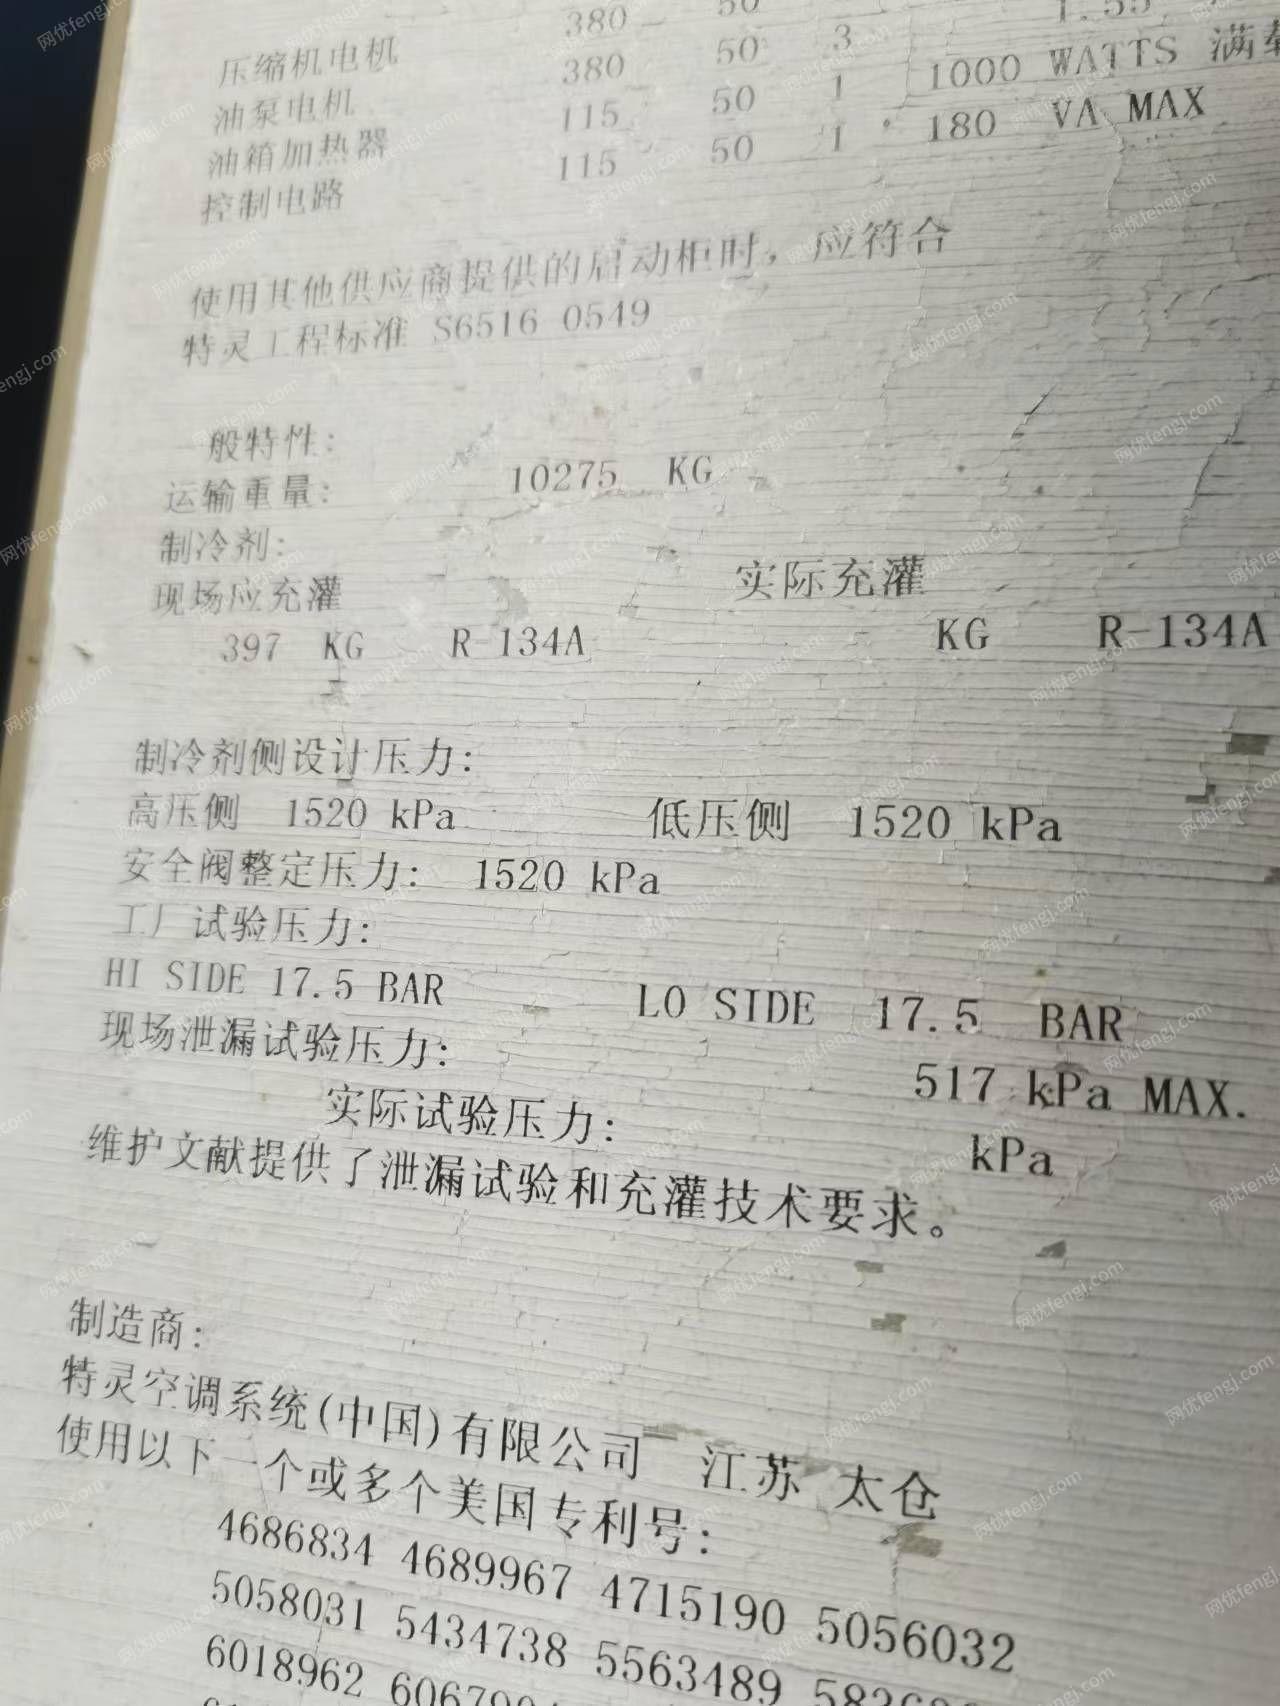 380 50 1.55
压缩机电机 380 50 3
油泵电机 115 50 1 1000 WATTS 满
油箱加热器 115 50 1 180 VA MAX
控制电路
使用其他供应商提供的启动柜时，应符合
特灵工程标准 S6516 0549
一般特性:
运输重量: 10275 KG
制冷剂:
现场应充灌 实际充灌
397 KG R-134A KG R-134A
制冷剂侧设计压力:
高压侧 1520 kPa 低压侧 1520 kPa
安全阀整定压力: 1520 kPa
工厂试验压力:
HI SIDE 17.5 BAR LO SIDE 17.5 BAR
现场泄漏试验压力: 517 kPa MAX.
实际试验压力: kPa
维护文献提供了泄漏试验和充灌技术要求。
制造商:
特灵空调系统(中国)有限公司 江苏 太仓
使用以下一个或多个美国专利号:
4686834 4689967 4715190 5056032
5058031 5434738 5563489
6018962
网优fengj.com